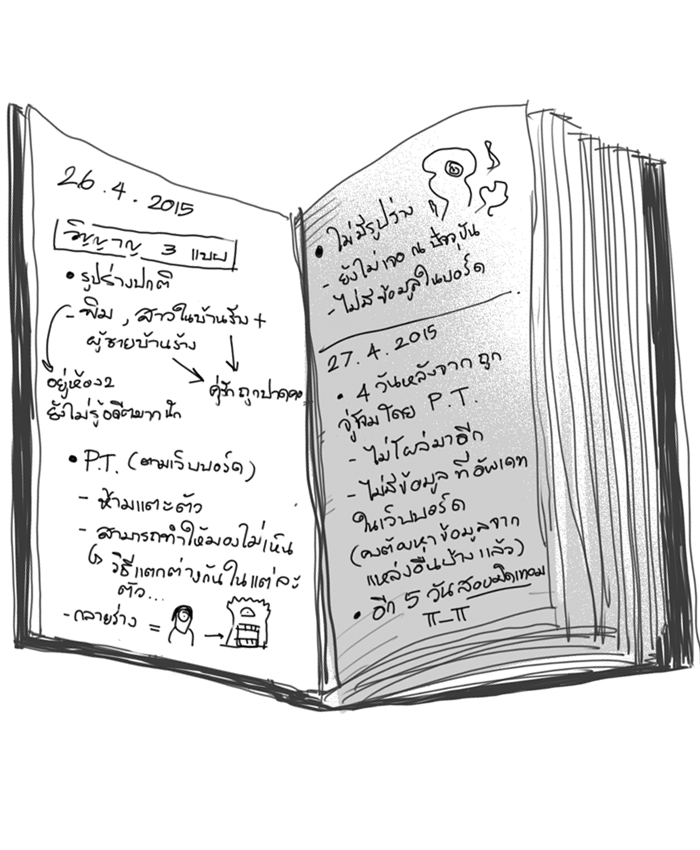 26.4.2015
วิญญาณ 3 แบบ
• รูปร่างปกติ
- พิม, สาวในบ้านร้าง +
ผู้ชายบ้านร้าง
อยู่ห้อง2
ยังไม่รู้อดีตมากนัก
คู่รักถูกปาดคอ
• P.T. (ตามเว็บบอร์ด)
- ห้ามแตะตัว
- สามารถทำให้มองไม่เห็น
↳ วิธีแตกต่างกันในแต่ละ
ตัว...
- กลายร่าง =
• ไม่มีรูปร่าง
- ยังไม่เจอ ณ ปัจจุบัน
- ไม่มีข้อมูลในบอร์ด
27.4.2015
• 4 วันหลังจาก ถูก
จู่โจมโดย P.T.
- ไม่โผล่มาอีก
- ไม่มีข้อมูลที่อัพเดท
ในเว็บบอร์ด
(คงต้องหาข้อมูลจาก
แหล่งอื่นบ้างแล้ว)
• อีก 5 วันสอบปิดเทอม
T_T